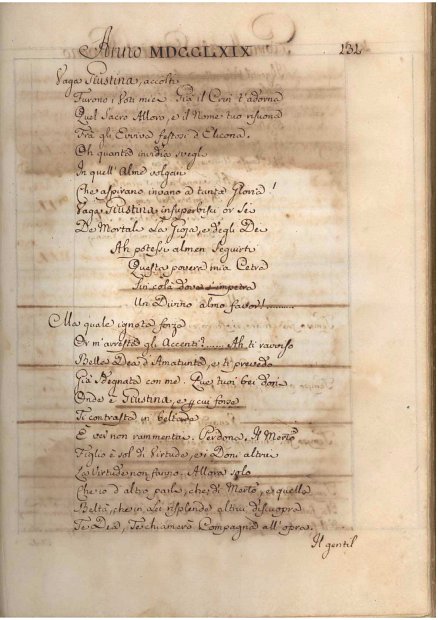 Anno MDCCLXIX 232
Vaga Giustina, accolti
Furono i Voti miei. Già il Crin t'adorna
Quel Sacro Alloro, e il Nome tuo risuona
Trà gli Evviva festosi d'Elicona.
Oh quanta invidia svegli
In quell'Alme volgari
Che aspirano invano a tanta Gloria!
Vaga Giustina insuperbisci or Sei
De' Mortali La Gioja, e degli Dei
Ah potessi almen Seguirti
Questa povera mia Cetra
Fin colà dove s'impetra
Un Divino almo favor!.........
Ma quale ignota forza
Or m'arresta gli Accenti?...... Ah ti ravviso
Bella Dea d'Amatunta, e ti prevedo
Già Sdegnata con me. Que' tuoi bei doni
Onde è Giustina, e cui forse
Ti contrasta in beltade
E ver non rammentai. Perdona. Il Merto
Figlio è sol di Virtude, e i Doni altrui
La Virtude non fanno. Allora solo
Ch'io d'altro parle, che di Merto, e quella
Beltà, che in Lei risplende altrui discuopra
Te Dea, Te chiamerò Compagna all'opra.
Il gentil